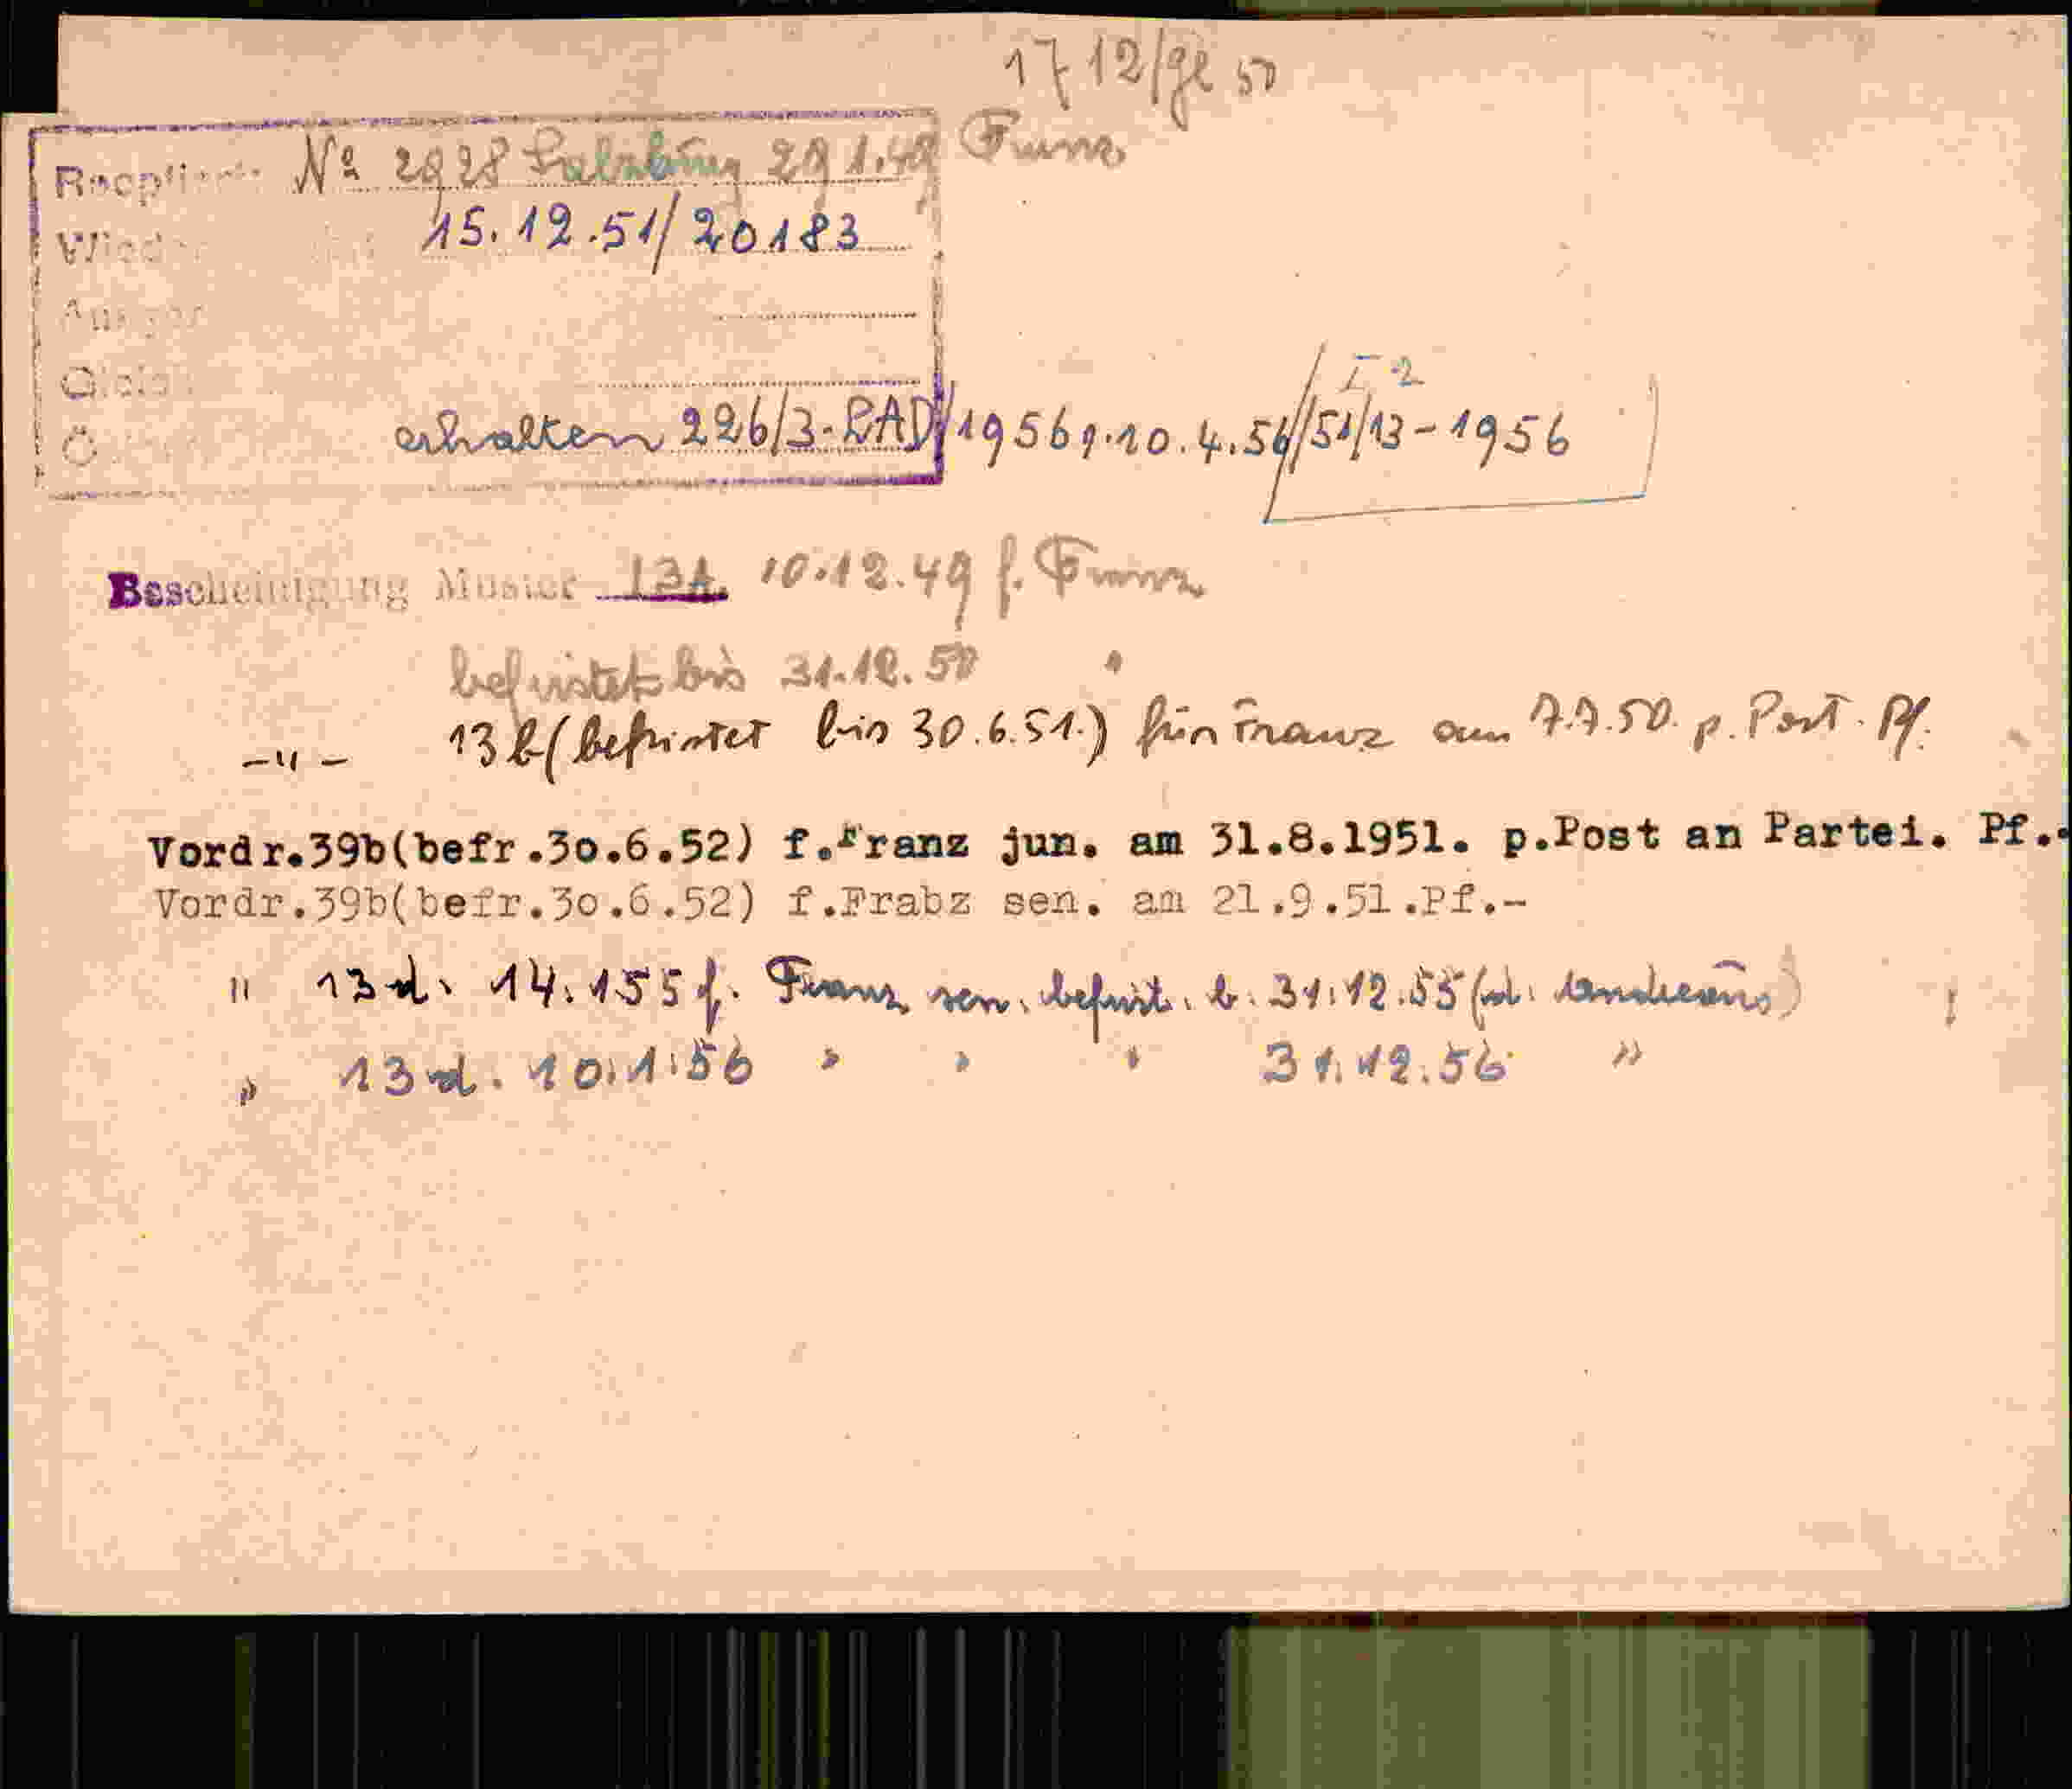 17 12/ge 50
Nº 2928 Salzburg 29 1.49 Franz
15.12.51/20183
erhalten 226/3-RAD/1956, 10.4.56/51/13-1956
I-2
Bescheinigung Muster 13A. 10.12.49 f. Franz
befristet bis 31.12.50 "
-"- 13b (befristet bis 30.6.51.) für Franz am 7.7.50. p. Post. Pf.
Vordr.39b(befr.30.6.52) f.Franz jun. am 31.8.1951. p.Post an Partei. Pf.-
Vordr.39b(befr.30.6.52) f.Frabz sen. am 21.9.51.Pf.-
" 13d. 14.1.55 f. Franz sen. befrist. b. 31.12.55
" 13d. 10.1.56 " " " 31.12.56 "